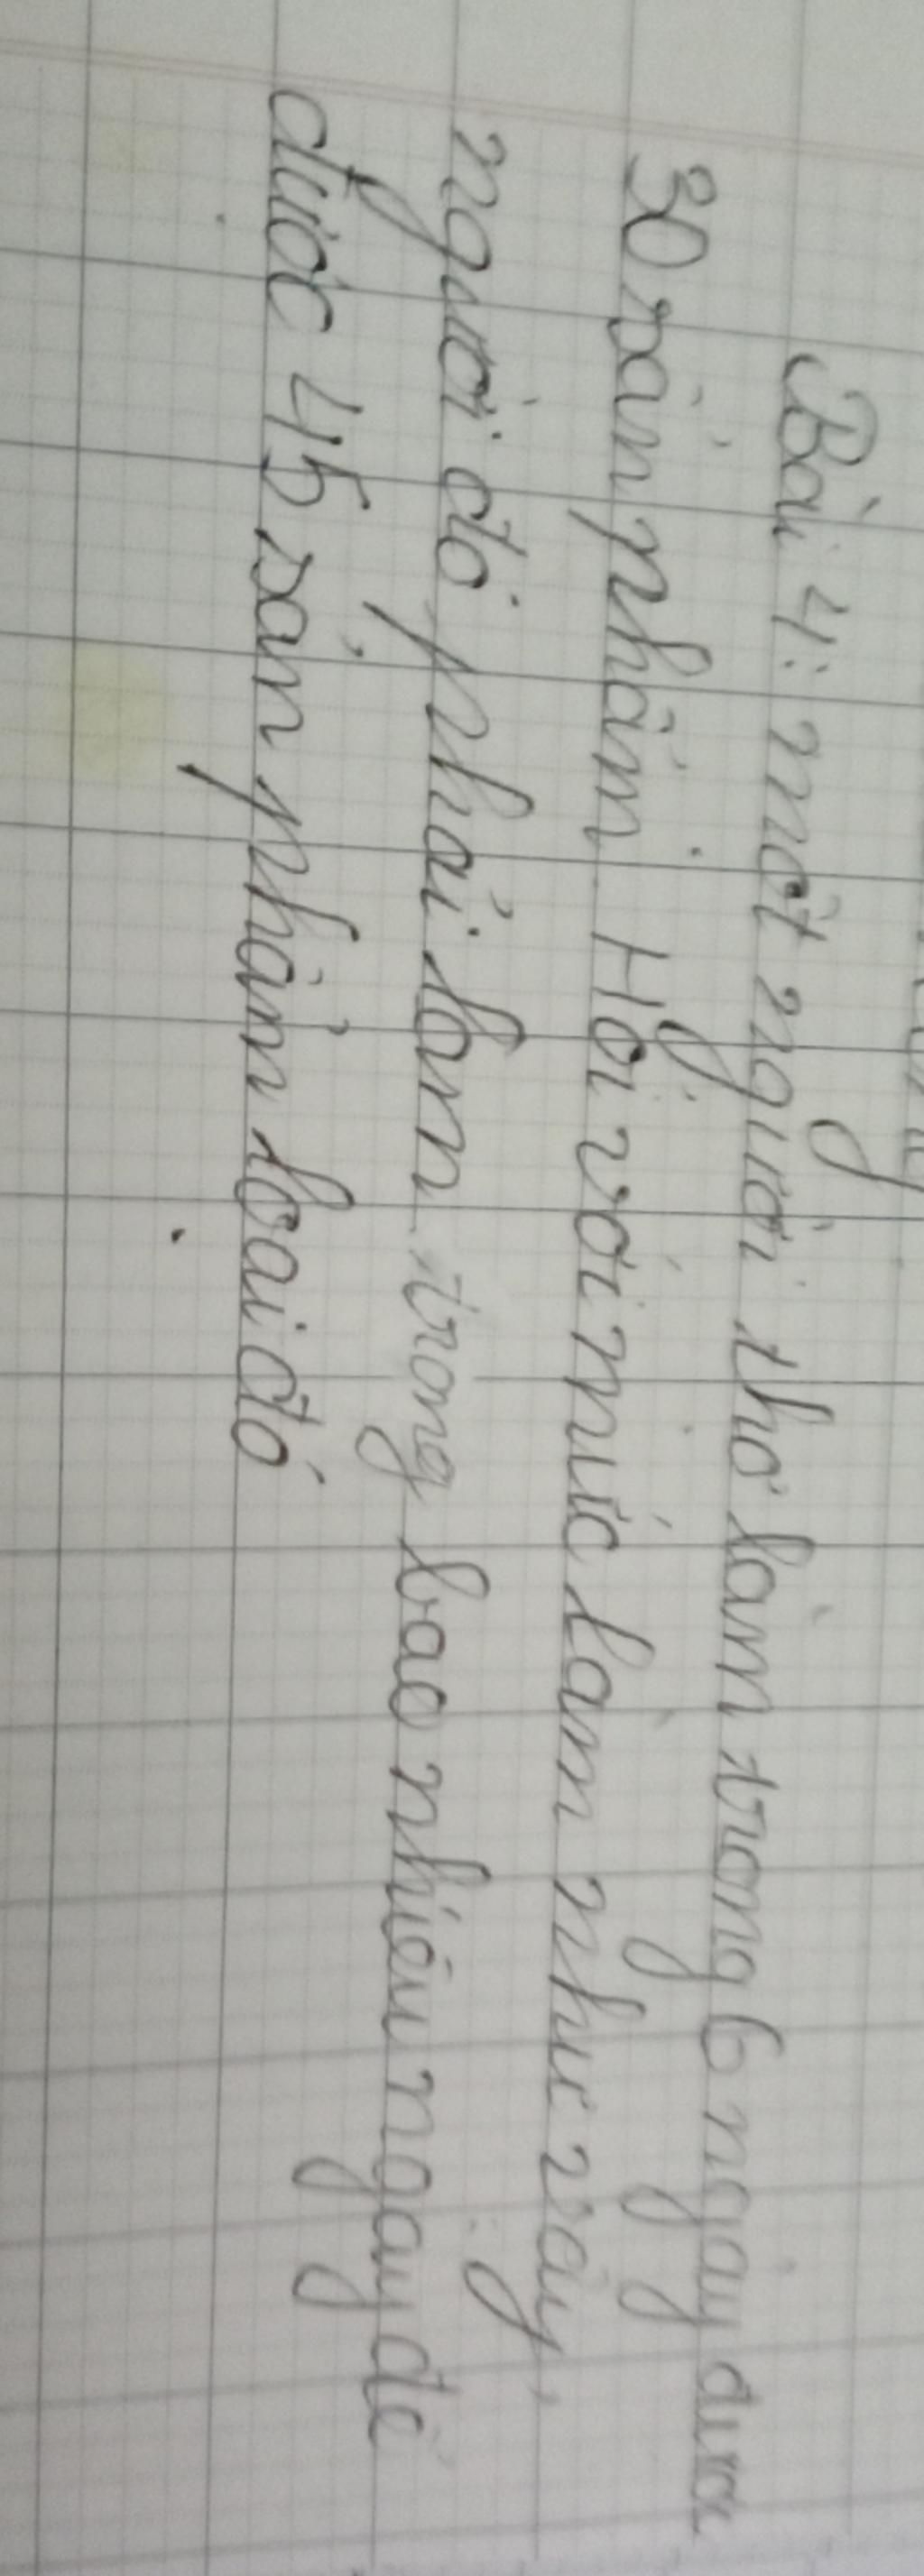 Bài 4: một người thợ làm trong 6 ngày được
30 sản phẩm. Hỏi với mức làm như vậy,
người đó phải làm trong bao nhiêu ngày để
được 45 sản phẩm loại đó